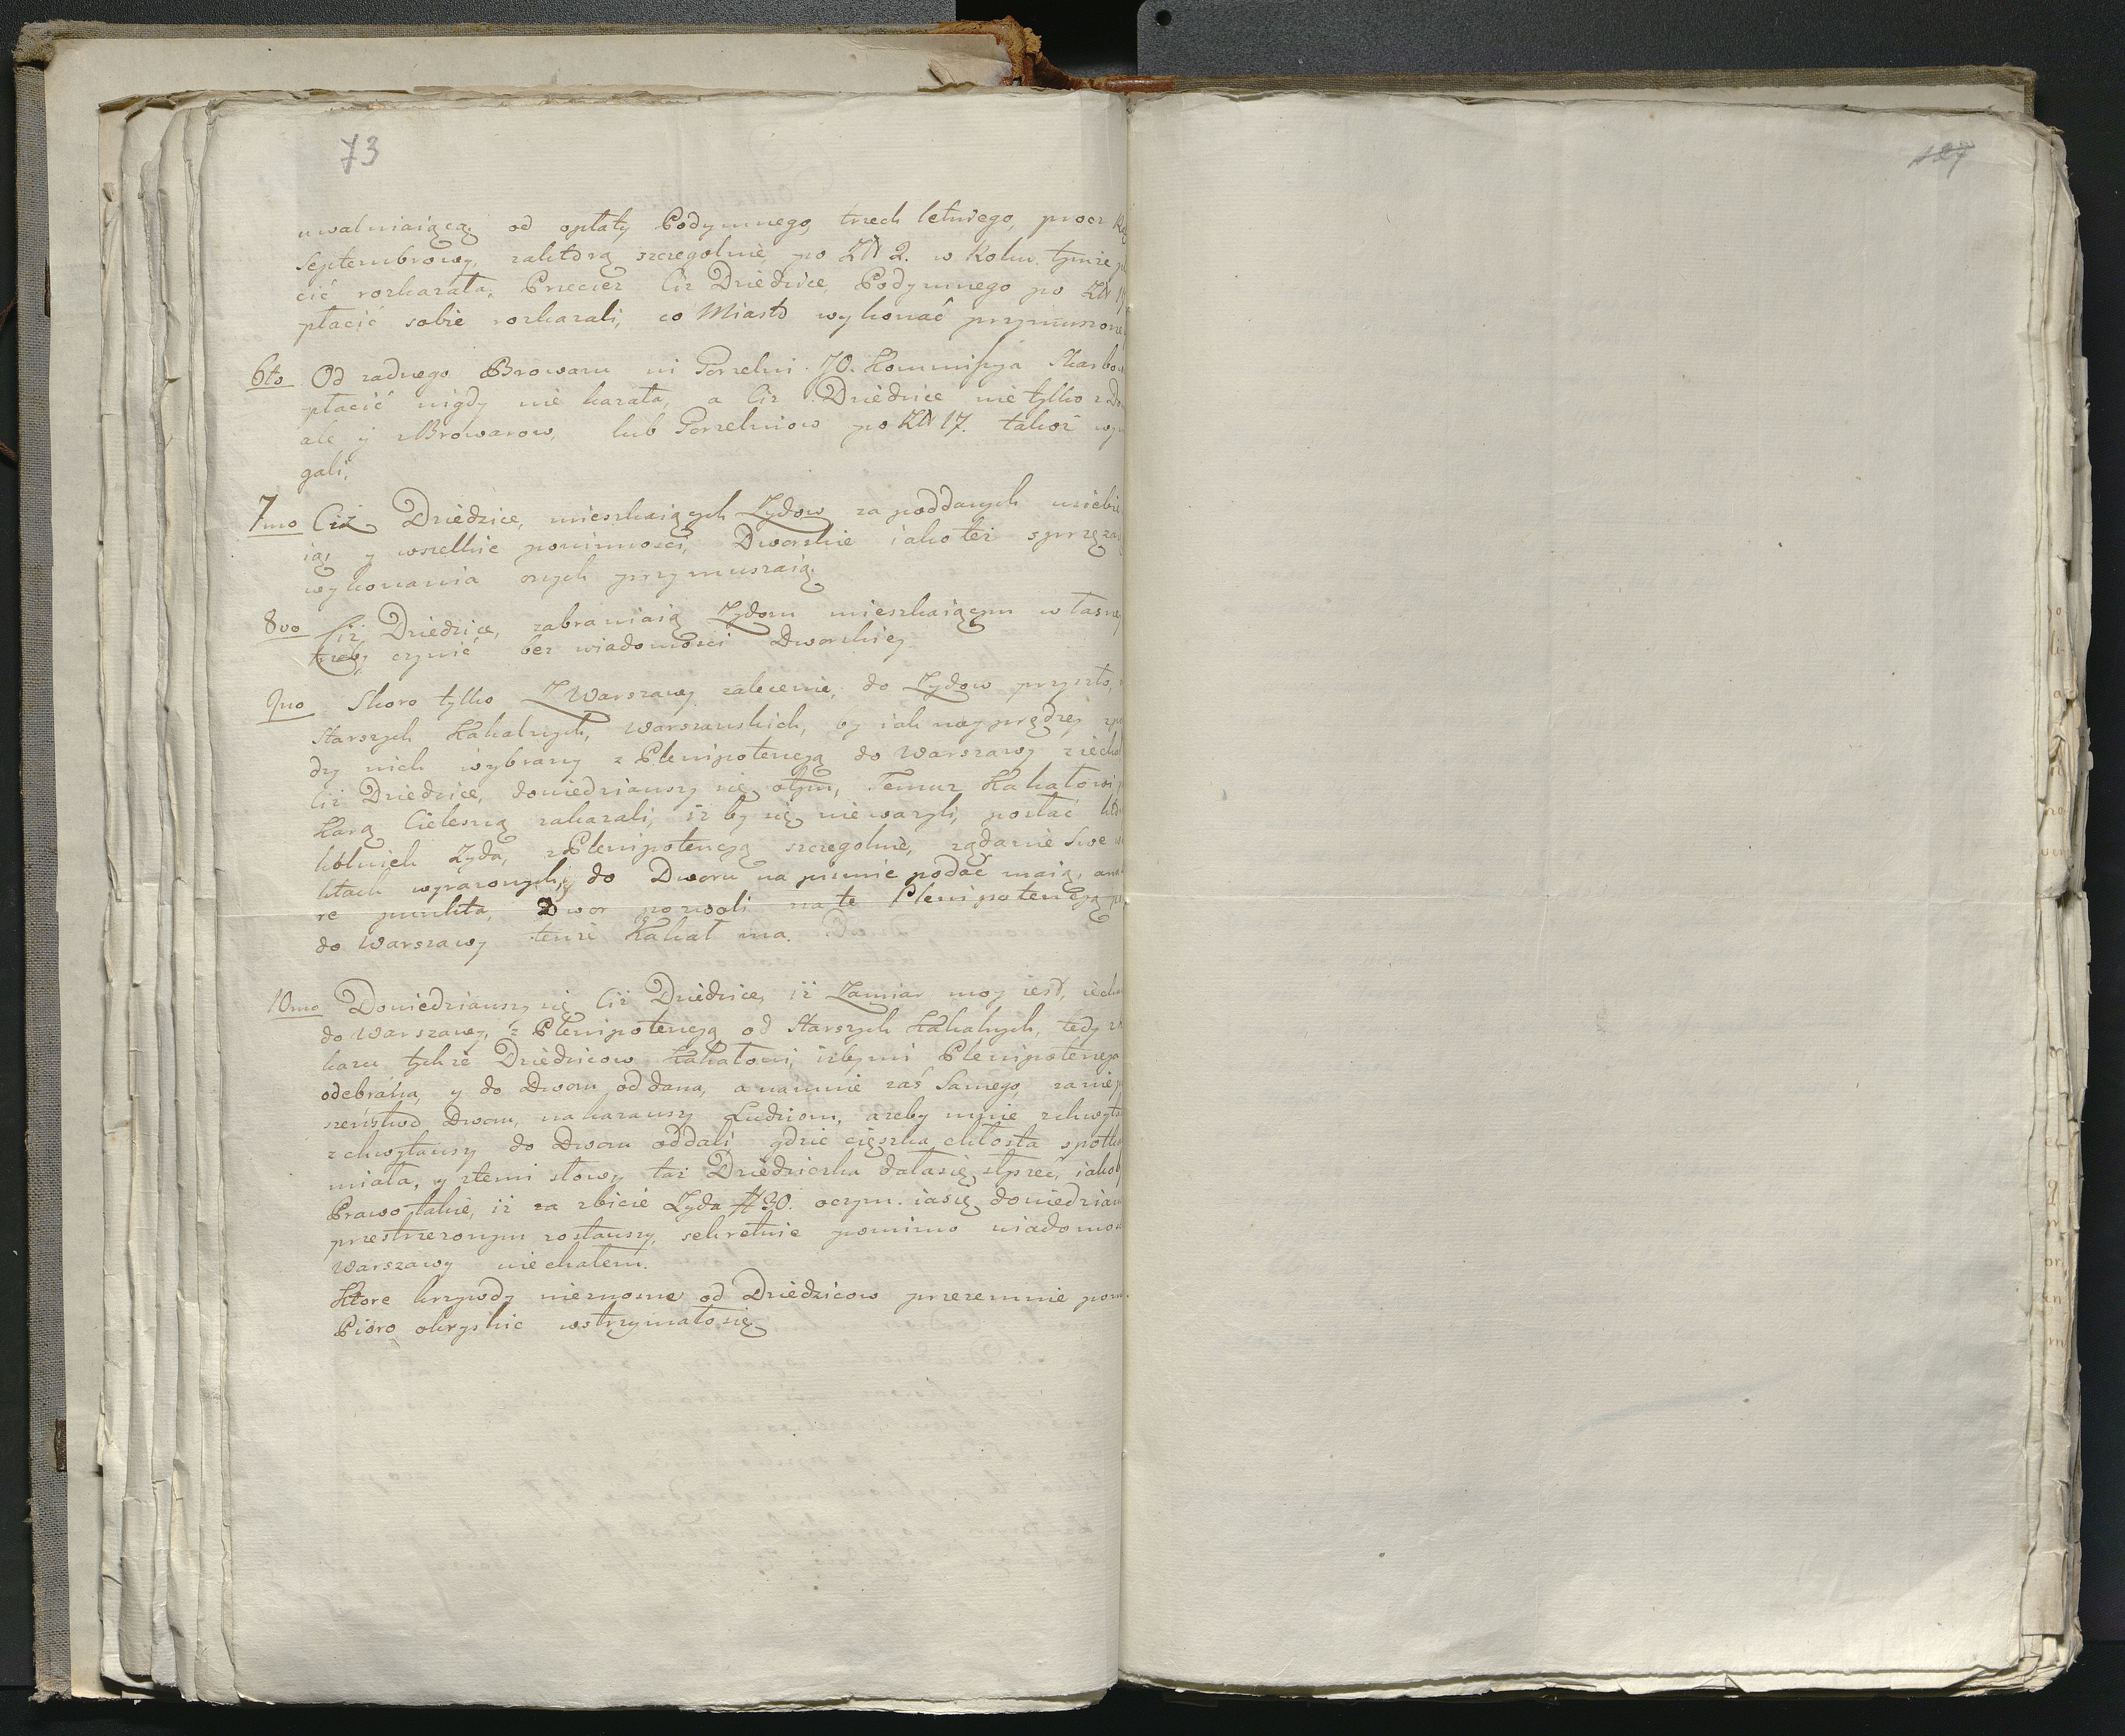 73
127
uwalniaiącą od opłaty Podymnego trzech letniego, procz
Septembrowy, zaktorą szczegolnie po Zł 2. w Roku tymze
cić rozkazała, Przecież Ciż Dziedzice Podymnego po Zł
płacić sobie rozkazali, co Miasto wykonać przymuszone
6to Od zadnego Browaru ni Gorzelni JO. Kommissya Skarbow
płacić nigdy nie kazała, a Ciż Dziedzice nie tylko z Do
ale y z Browarow, lub Gorzelniow po Zł 17. takoż wy
gali,
7mo Ciż Dziedzice, mieszkaiących Zydow za poddanych usiebie
ią, y wszelkie powinnosci, Dworskie iako też sprzęza
wykonania onych przymuszaią
8vo Ciż Dziedzice, zabraniaią Zydom mieszkaiącym własne
trzeby czynić bez wiadomosci Dworskiey
9no Skoro tylko Z Warszawy zalecenie, do Zydow przyszło,
Starszych Kahalnych, Warszawskich, by iak nayprędzey
dzy nich wybrany z Plenipotencyą do Warszawy ziechał
Ciż Dziedzice, dowiedziawszy się otym, Temuz Kahałowi
Karą Cielesną zakazali, iż by się nieważyli, posłać
kolwiek Zyda, z Plenipotencyą szczegolnie, żądanie Swe
ktach wyrazonych, do Dworu na pismie podać maią, ana
re punkta, Dwor pozwoli na te Plenipotencyą
do Warszawy tenże Kahał ma.
10mo Dowiedziawszy się Ciż Dziedzice, iż Zamiar moy iest, iecha
do Warszawy, z Plenipotencyą od Starszych Kahalnych, tedy
kazu tychże Dziedzicow Kahałowi, iżbymi Plenipotencya
odebrana, y do Dworu oddana, a namnie zaś Samego, zanie
szeństwo Dworu, nakazawszy Ludziom, azeby mnie zchwyta
zchwytawszy do Dworu oddali gdzie cięszka chłosta spotka
miała, y ztemi słowy taż Dziedziczka dałasię słyszeć, iakoby
Prawo takie, iż za zbicie Zyda # 30. oczym iasię dowiedziaw
przestrzezonym zostawszy, sekretnie pomimo wiadomos
Warszawy uiechałem.
Ktore krzywdy nieznosne od Dziedzicow przezemnie
Pioro okryslic wstrzymałosię